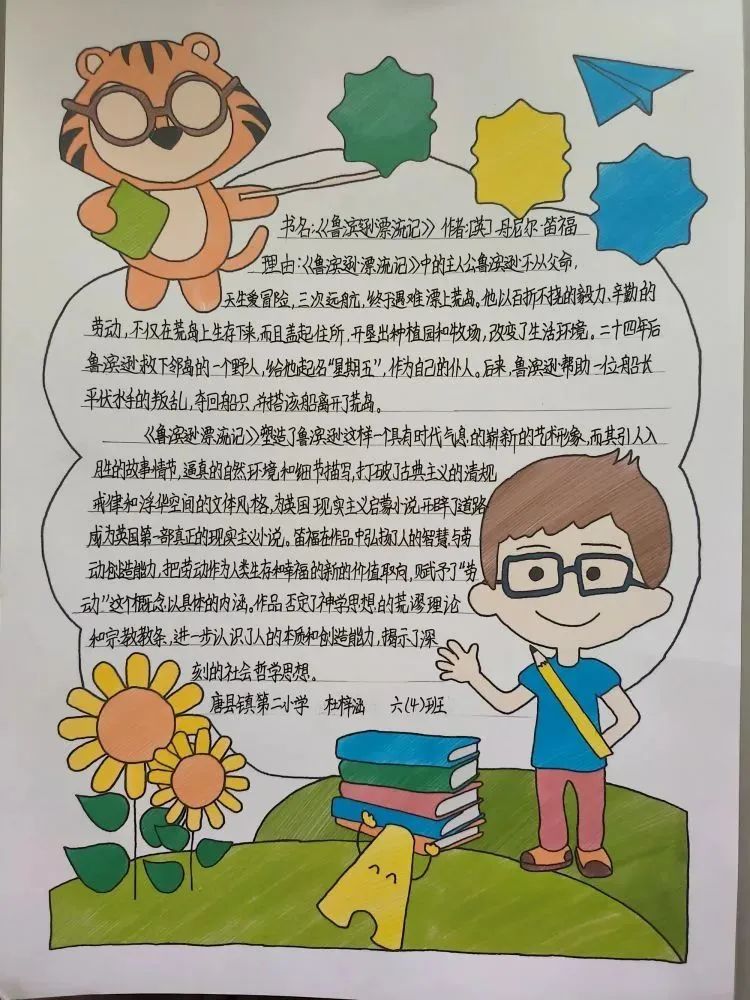 书名:《鲁滨逊漂流记》 作者:[英]·丹尼尔·笛福
理由:《鲁滨逊漂流记》中的主人公鲁滨逊不从父命,
天生爱冒险, 三次远航, 终于遇难漂上荒岛。他以百折不挠的毅力、辛勤的
劳动, 不仅在荒岛上生存下来, 而且盖起住所, 开垦出种植园和牧场, 改变了生活环境。二十四年后
鲁滨逊救下邻岛的一个野人, 给他起名“星期五”, 作为自己的仆人。后来, 鲁滨逊帮助一位船长
平伏水手的叛乱, 夺回船只, 并搭该船离开了荒岛。
《鲁滨逊漂流记》塑造了鲁滨逊这样一个具有时代气息的崭新的艺术形象, 而其引人入
胜的故事情节, 逼真的自然环境和细节描写, 打破了古典主义的清规
戒律和浮华空间的文体风格, 为英国现实主义启蒙小说开辟了道路
成为英国第一部真正的现实主义小说。笛福在作品中弘扬了人的智慧与劳
动创造能力, 把劳动作为人类生存和幸福的新的价值取向, 赋予了“劳
动”这个概念以具体的内涵。作品否定了神学思想的荒谬理论
和宗教教条, 进一步认识了人的本质和创造能力, 揭示了深
刻的社会哲学思想。
唐县镇第二小学 杜梓涵 六(4)班